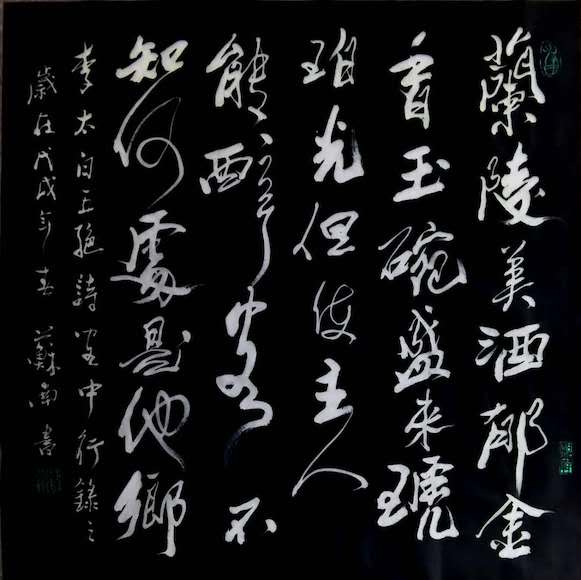 蘭陵美酒郁金
香玉碗盛來琥
珀光但使主人
能醉客不
知何處是他鄉
李太白絕詩客中行錄之
歲在戊戌年春蘇南書